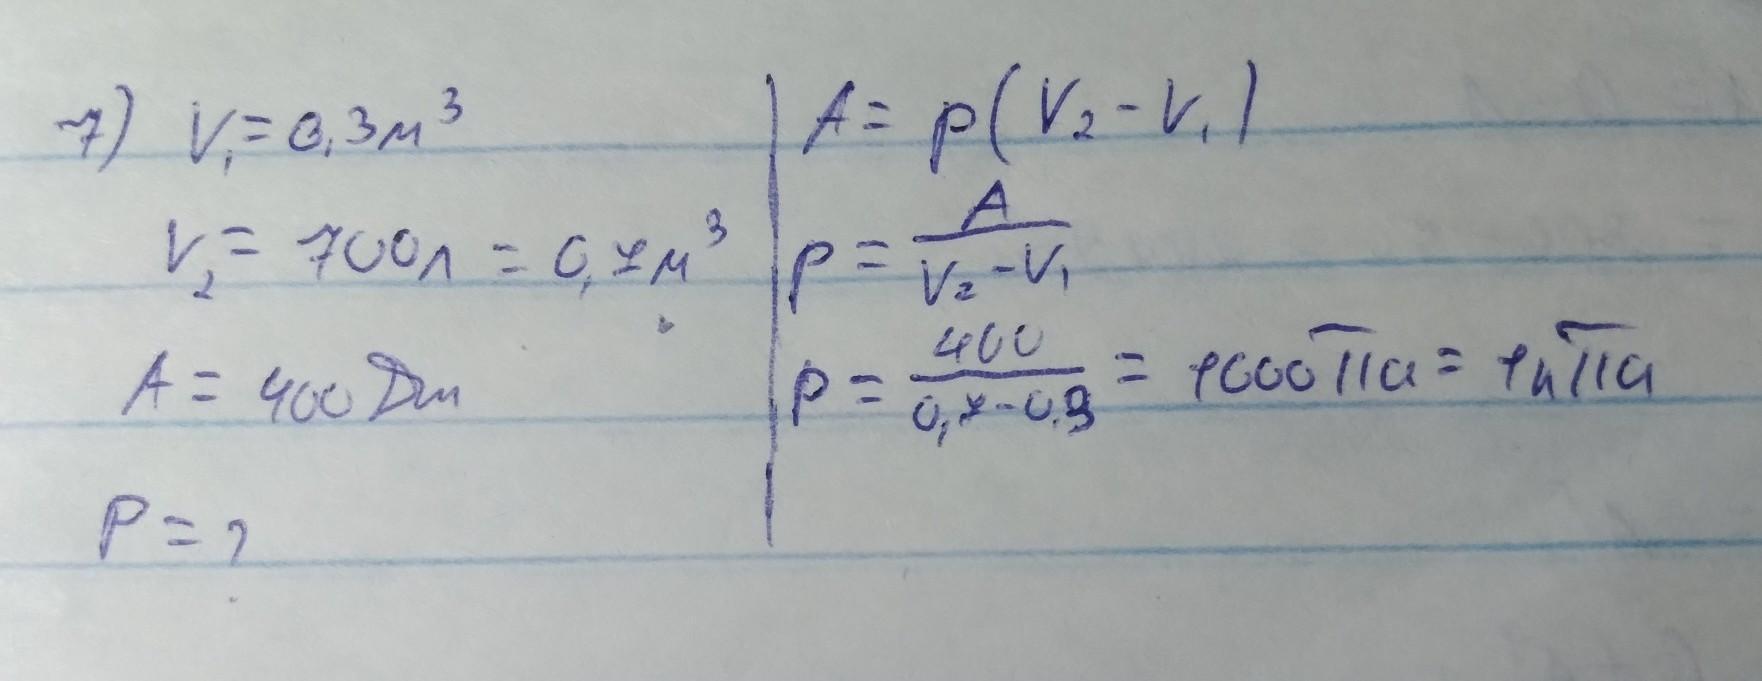 7) V₁ = 0,3 м³
V₂ = 700 л = 0,7 м³
A = 400 Дж
P = ?
A = p(V₂ - V₁)
p = A / (V₂ - V₁)
p = 400 / (0,7 - 0,3) = 1000 Па = 1кПа